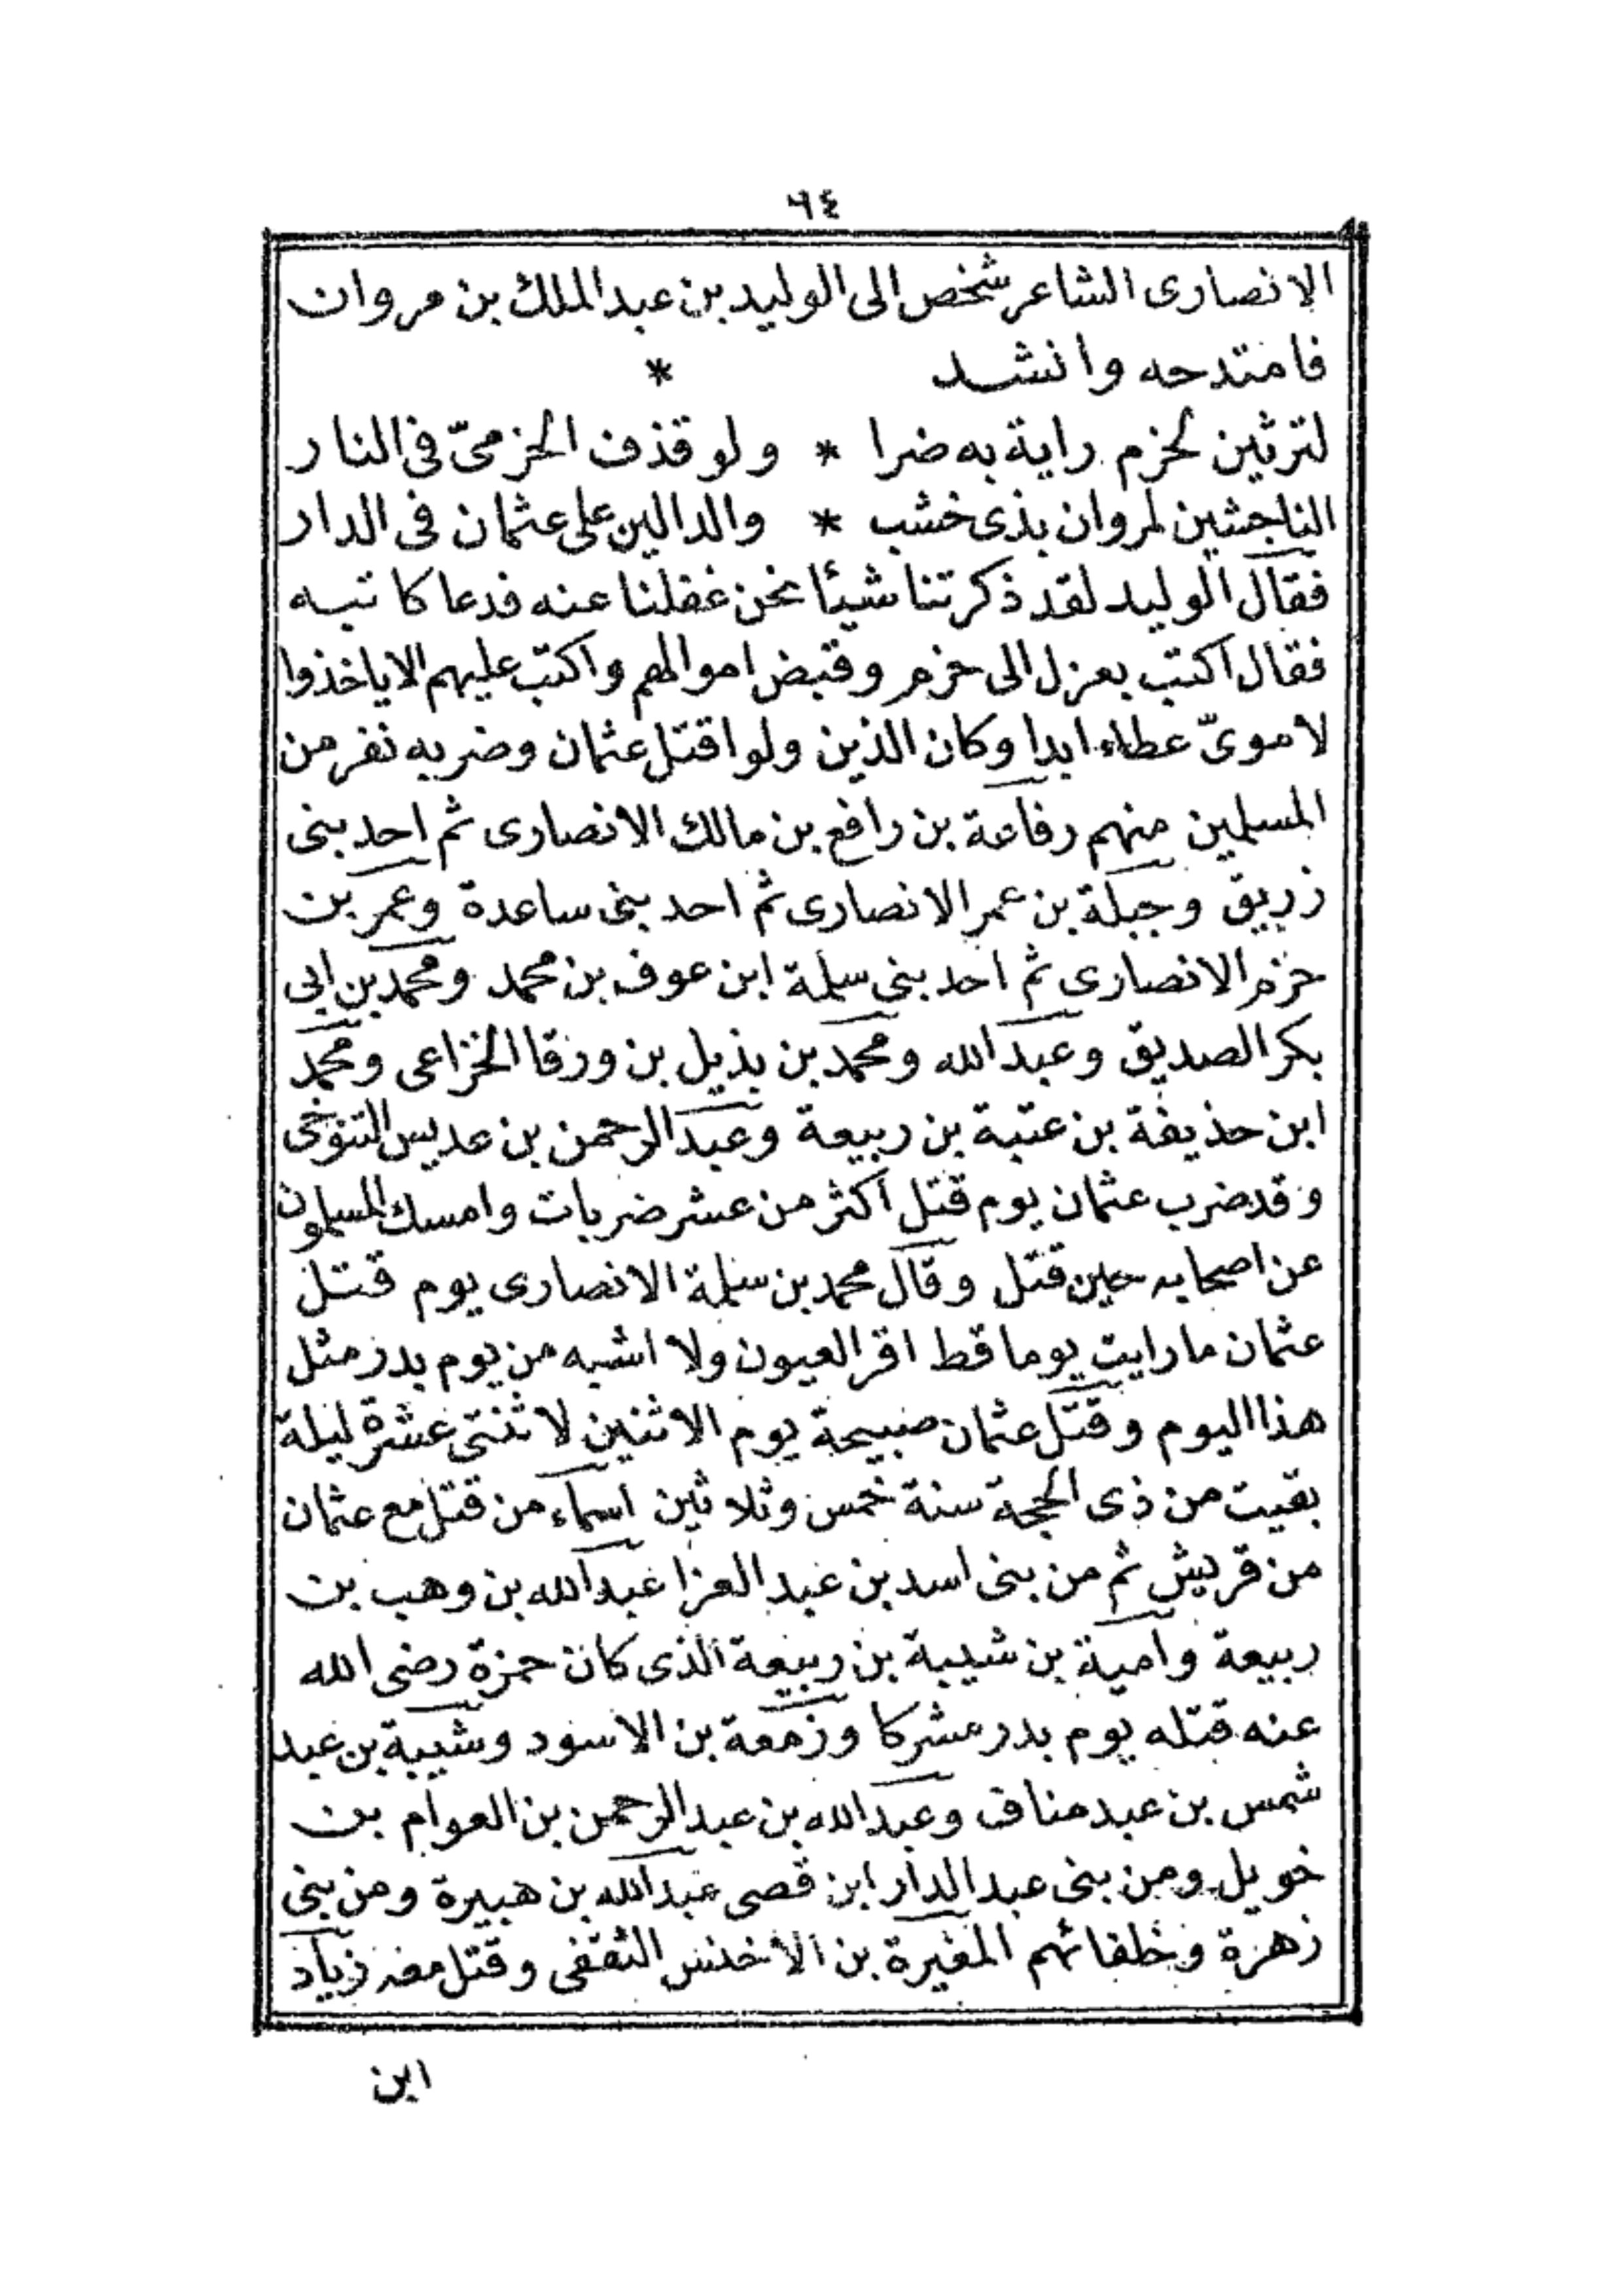 ٦٤
الانصارى الشاعر شخص الى الوليد بن عبد الملك بن مروان
فامتدحه وانشد *
لترثين لحزم راية به ضرا * ولو قذف الحزمىّ فى النار
الناجشين لمروان بذى خشب * والدالين على عثمان فى الدار
فقال الوليد لقد ذكرتنا شيئا نحن غفلنا عنه فدعا كاتبه
فقال اكتب بعزل الى حزم وقبض اموالهم واكتب عليهم الا ياخذوا
لاموىّ عطاء ابدا وكان الذين ولوا قتل عثمان وضربه نفر من
المسلمين منهم رفاعة بن رافع بن مالك الانصارى ثم احد بنى
زريق وجبلة بن عمر الانصارى ثم احد بنى ساعدة وعمر بن
حزم الانصارى ثم احد بنى سلمة ابن عوف بن محمد ومحمد بن ابى
بكر الصديق وعبد الله ومحمد بن بذيل بن ورقا الخزاعى ومحمد
ابن حذيفة بن عتبة بن ربيعة وعبد الرحمن بن عديس التنوخى
وقد ضرب عثمان يوم قتل اكثر من عشر ضربات وامسك المسلمون
عن اصحابه حين قتل وقال محمد بن سلمة الانصارى يوم قتل
عثمان ما رايت يوما قط اقر العيون ولا اشبه من يوم بدر مثل
هذا اليوم وقتل عثمان صبيحة يوم الاثنين لاثنتى عشرة ليلة
بقيت من ذى الحجة سنة خمس وثلاثين اسماء من قتل مع عثمان
من قريش ثم من بنى اسد بن عبد العزا عبد الله بن وهب بن
ربيعة وامية بن شيبة بن ربيعة الذى كان حمزة رضى الله
عنه قتله يوم بدر مشركا وزمعة بن الاسود وشيبة بن عبد
شمس بن عبد مناف وعبد الله بن عبد الرحمن بن العوام بن
خويل ومن بنى عبد الدار ابن قصى عبد الله بن هبيرة ومن بنى
زهرة وخلفائهم المغيرة بن الاخنس الثقفى وقتل معه زياد
ابن